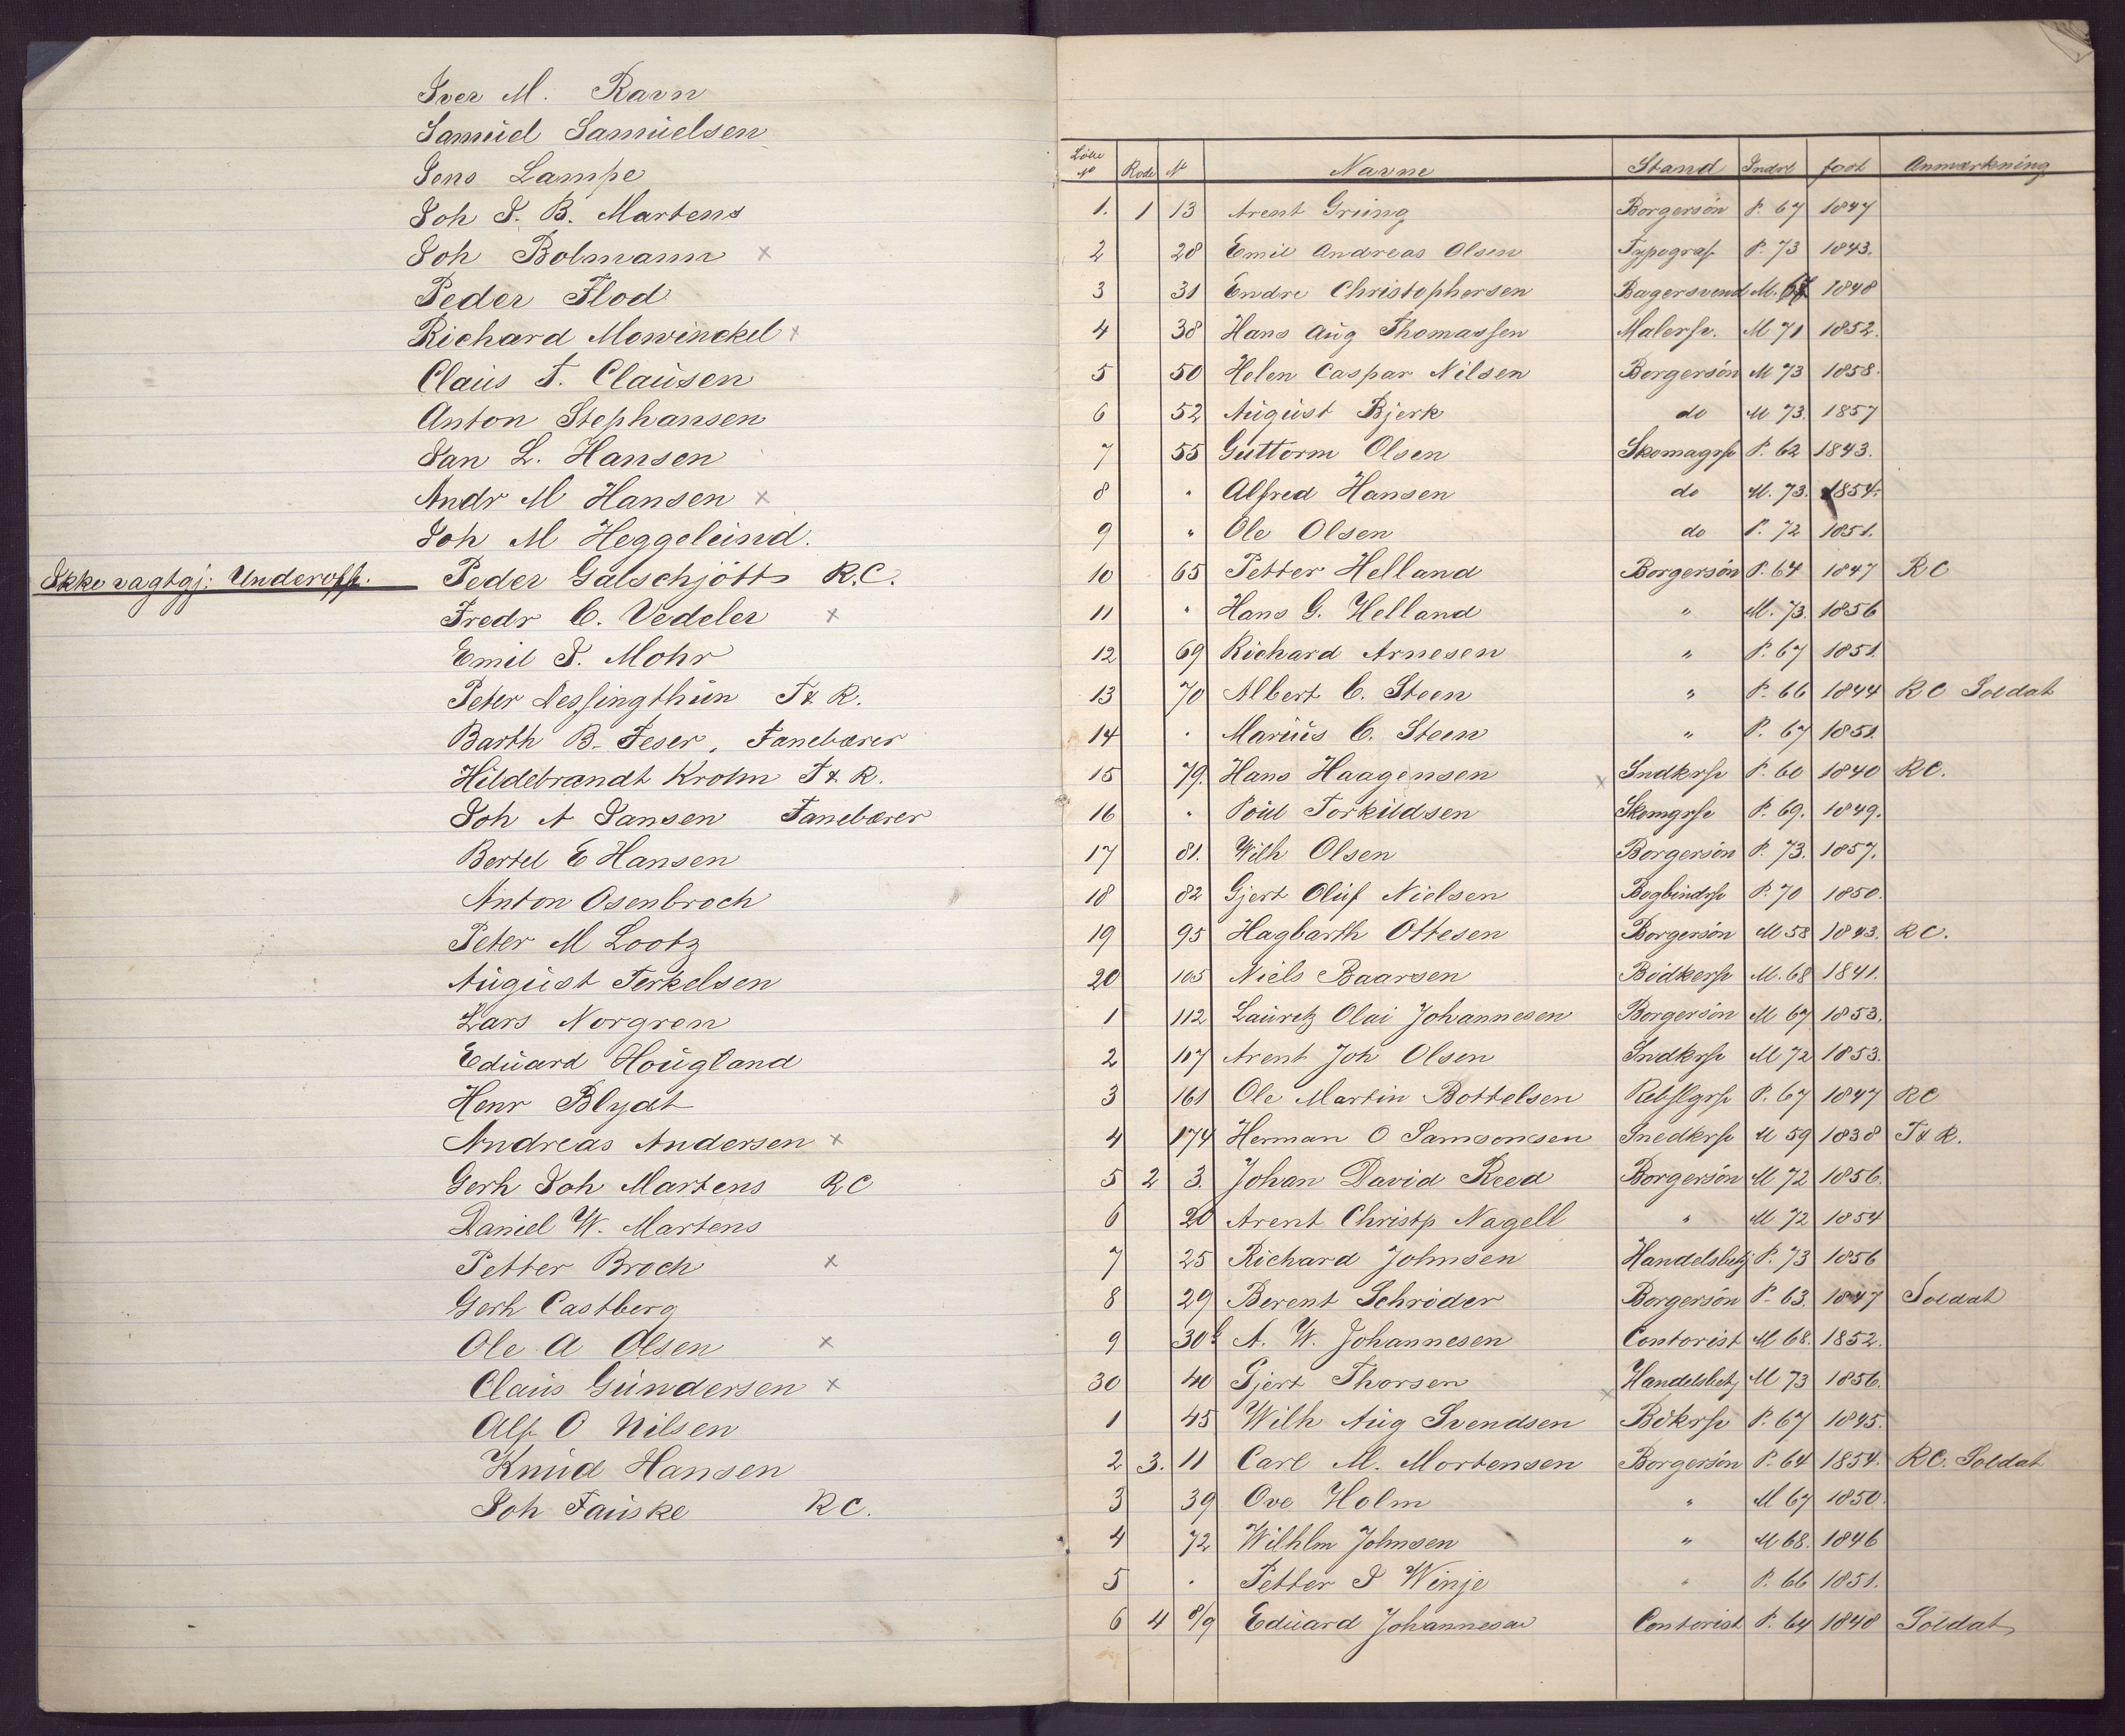 Iver M. Ravn
Samuel Samuelsen
Jens Lampe
Joh J. B. Martens
Joh Bolmann x
Peder Flod
Richard Mowinckel x
Claus F. Clausen
Anton Stephansen
Jan L. Hansen
Andr M Hansen x
Joh M Heggelund.
Ikke vagtgj: Underoff. Peder Galschjött R.C.
Fredr C. Vedeler x
Emil J. Mohr
Peter Nessingthun T & R.
Barth B. Feser, Fanebærer
Hildebrandt Krohn T & R.
Joh A Jansen Fanebærer
Bertel E Hansen
Anton Osenbroch
Peter M Lootz
August Terkelsen
Lars Norgren
Eduard Hougland
Henr Blydt
Andreas Andersen x
Gerh Joh Martens RC
Daniel W. Martens
Petter Broch x
Gerh Castberg
Ole A Olsen x
Claus Gundersen x
Alf O Nilsen
Knud Hansen
Joh Fauske RC.
Löbe No Rode N Navne Stand Indrl född Anmærkning
1. 1 13 Arent Grung Borgersön P. 67 1847
2 28 Emil Andreas Olsen Typograf P. 73 1843.
3 31 Endre Christophersen Bagersvend M. 67 1848
4 38 Hans Aug Thomassen Malersv. M 71 1852.
5 50 Helen Caspar Nilsen Borgersön M 73 1858.
6 52 August Bjerk do M 73. 1857
7 55 Guttorm Olsen Skomagsv P. 62 1843.
8 " Alfred Hansen do M. 73. 1854.
9 " Ole Olsen do P. 72 1851.
10 65 Petter Helland Borgersön P. 64 1847 RC
11 " Hans G. Helland " M. 73. 1856
12 69 Richard Arnesen " P. 67 1851.
13 70 Albert C. Steen " P. 66 1844 RC Soldat
14 " Marius C. Steen " P. 67 1851.
15 79. Hans Haagensen x Sndkrsv P. 60 1840 RC.
16 " Poul Torkildsen Skomgsv P. 69. 1849.
17 81. Wilh Olsen Borgersön P. 73. 1857.
18 82 Gjert Oluf Nielsen Bogbindsv P. 70 1850.
19 95 Hagbarth Ottesen Borgersön M 58 1843. RC.
20 105 Niels Baarsen Bödkersv M. 68 1841.
1 112 Lauretz Olai Johannesen Borgersön M 67 1853.
2 107 Arent Joh Olsen Sndkrsv M 72 1853.
3 161 Ole Martin Bottelsen Rebslgrsv P. 67 1847 RC
4 174 Herman O Samsonsen Snedkrsv M 59 1838 T & R.
5 2 3. Johan David Reed Borgersön M 72 1856.
6 20 Arent Christp Nagell " M 72 1854
7 25 Richard Johnsen Handelsbetj P. 73 1856
8 29 Berent Schröder Borgersön P. 63. 1847 Soldat
9 30b A. W. Johannesen Contorist M 68. 1852.
30 40 Gjert Thorsen x Handelsbetj M 73 1856.
1 45 Wilh Aug Svendsen Bökrsv P. 67 1845.
2 3. 11 Carl M. Mortensen Borgersön P. 64 1854. RC. Soldat
3 39 Ove Holm " M 67 1850.
4 72 Wilhlm Johnsen " M 68. 1846
5 " Petter J Winje " P. 66 1851.
6 4 8/9 Eduard Johannesen Contorist P. 64 1848 Soldat